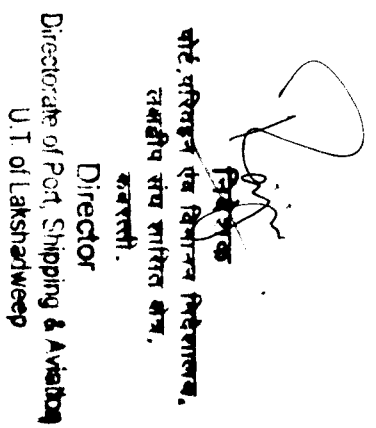 निदेशक
पोर्ट, परिवहन एवं विमानन निदेशालय,
लक्षद्वीप संघ शासित क्षेत्र,
कवरत्ती.
Director
Directorate of Port, Shipping & Aviation
U.T. of Lakshadweep